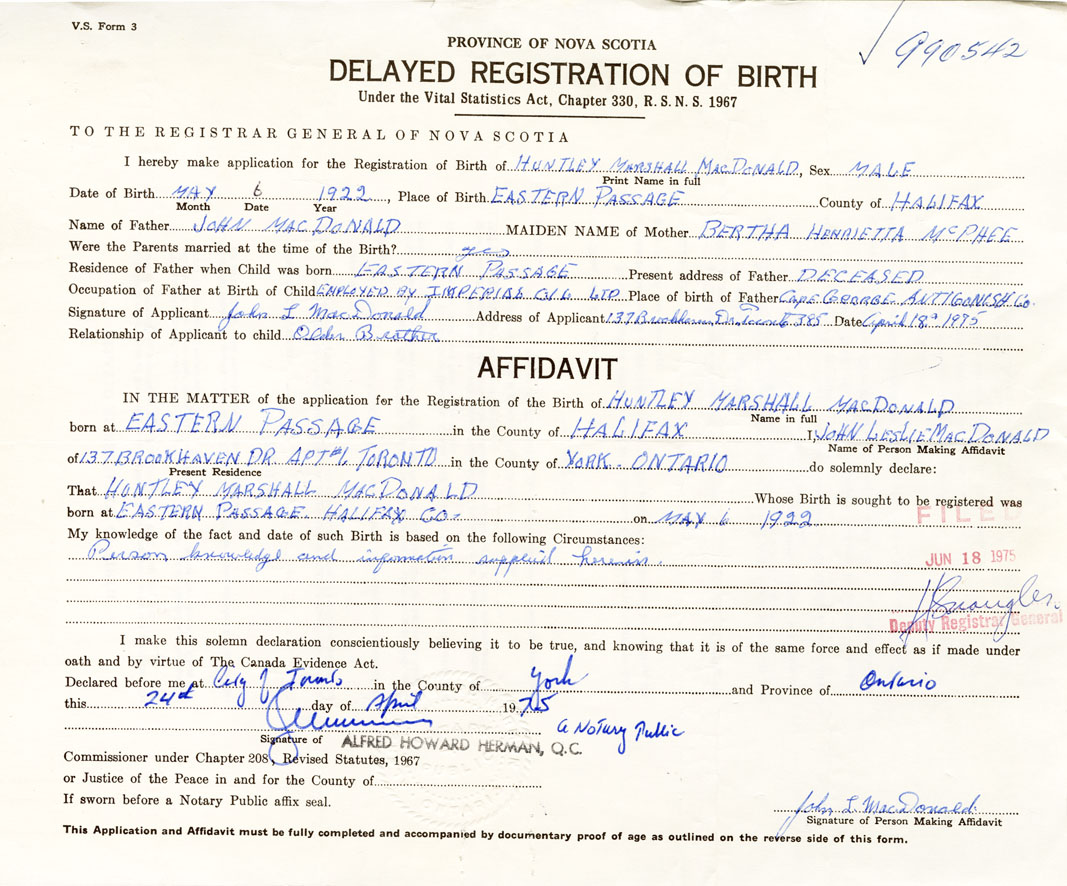 V.S. Form 3
990542
PROVINCE OF NOVA SCOTIA
DELAYED REGISTRATION OF BIRTH
Under the Vital Statistics Act, Chapter 330, R.S.N.S. 1967
TO THE REGISTRAR GENERAL OF NOVA SCOTIA
I hereby make application for the Registration of Birth of HUNTLEY MARSHALL MACDONALD, Sex MALE
Print Name in full
Date of Birth MAY 6 1922, Place of Birth EASTERN PASSAGE County of HALIFAX
Month Date Year
Name of Father JOHN MACDONALD MAIDEN NAME of Mother BERTHA HENRIETTA McPHEE
Were the Parents married at the time of the Birth? yes
Residence of Father when Child was born EASTERN PASSAGE Present address of Father DECEASED
Occupation of Father at Birth of Child EMPLOYED BY IMPERIAL OIL LTD Place of birth of Father CAPE GEORGE ANTIGONISH CO.
Signature of Applicant John L MacDonald Address of Applicant 137 Brookhaven Dr. Toronto 385 Date April 18 1975
Relationship of Applicant to child Older Brother
AFFIDAVIT
IN THE MATTER of the application for the Registration of the Birth of HUNTLEY MARSHALL MACDONALD
Name in full
born at EASTERN PASSAGE in the County of HALIFAX I, JOHN LESLIE MACDONALD
Name of Person Making Affidavit
of 137 BROOKHAVEN DR APT #1, TORONTO in the County of YORK - ONTARIO do solemnly declare:
Present Residence
That HUNTLEY MARSHALL MACDONALD Whose Birth is sought to be registered was
born at EASTERN PASSAGE HALIFAX CO- on MAY 6 1922
FILED
My knowledge of the fact and date of such Birth is based on the following Circumstances:
Person knowledge and information supplied herein.
JUN 18 1975
Deputy Registrar General
I make this solemn declaration conscientiously believing it to be true, and knowing that it is of the same force and effect as if made under
oath and by virtue of The Canada Evidence Act.
Declared before me at City of Toronto in the County of York and Province of Ontario
this 24th day of April 1975
a Notary Public
Signature of ALFRED HOWARD HERMAN, Q.C.
Commissioner under Chapter 208, Revised Statutes, 1967
or Justice of the Peace in and for the County of
If sworn before a Notary Public affix seal.
John L. MacDonald
Signature of Person Making Affidavit
This Application and Affidavit must be fully completed and accompanied by documentary proof of age as outlined on the reverse side of this form.